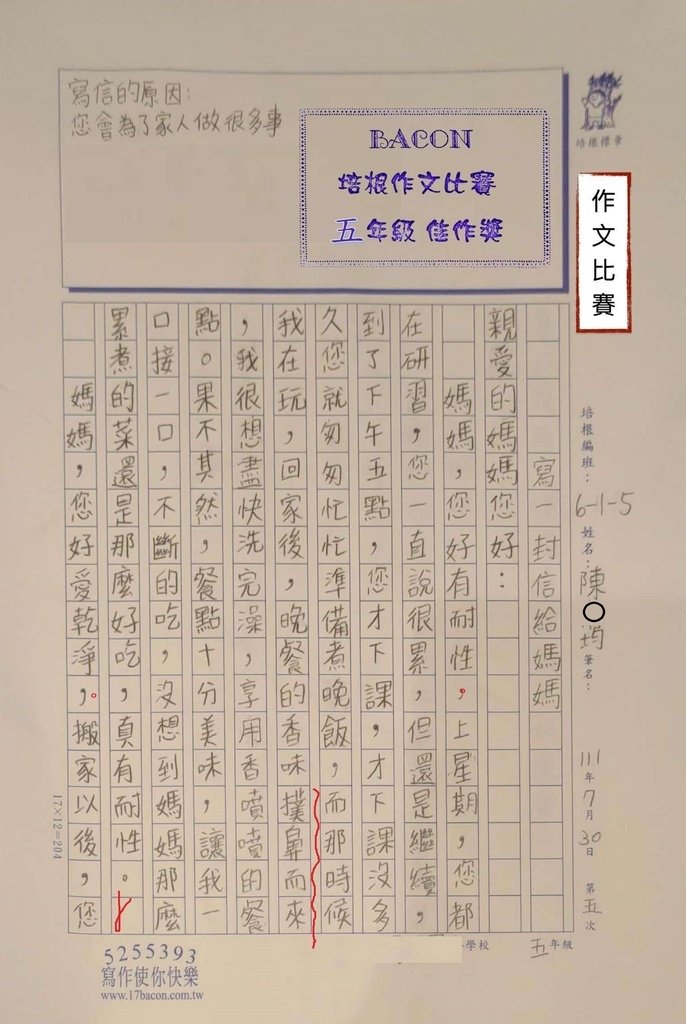 寫信的原因：
您會為了家人做很多事
BACON
培根作文比賽
五年級 佳作獎
培根標章
作文比賽
培根編班：6-1-5 姓名：陳○均 筆名：
111年7月30日 第五次
寫一封信給媽媽
親愛的媽媽您好：
媽媽，您好有耐性，上星期，您都
在研習，您一直說很累，但還是繼續，
到了下午五點，您才下課，才下課沒多
久您就匆匆忙忙準備煮晚飯，而那時候
我在玩，回家後，晚餐的香味撲鼻而來
，我很想盡快洗完澡，享用香噴噴的餐
點。果不其然，餐點十分美味，讓我一
口接一口，不斷的吃，沒想到媽媽那麼
累煮的菜還是那麼好吃，真有耐性。
媽媽，您好愛乾淨，搬家以後，您
17×12=204
5255393
寫作使你快樂
www.17bacon.com.tw
小學校 五年級